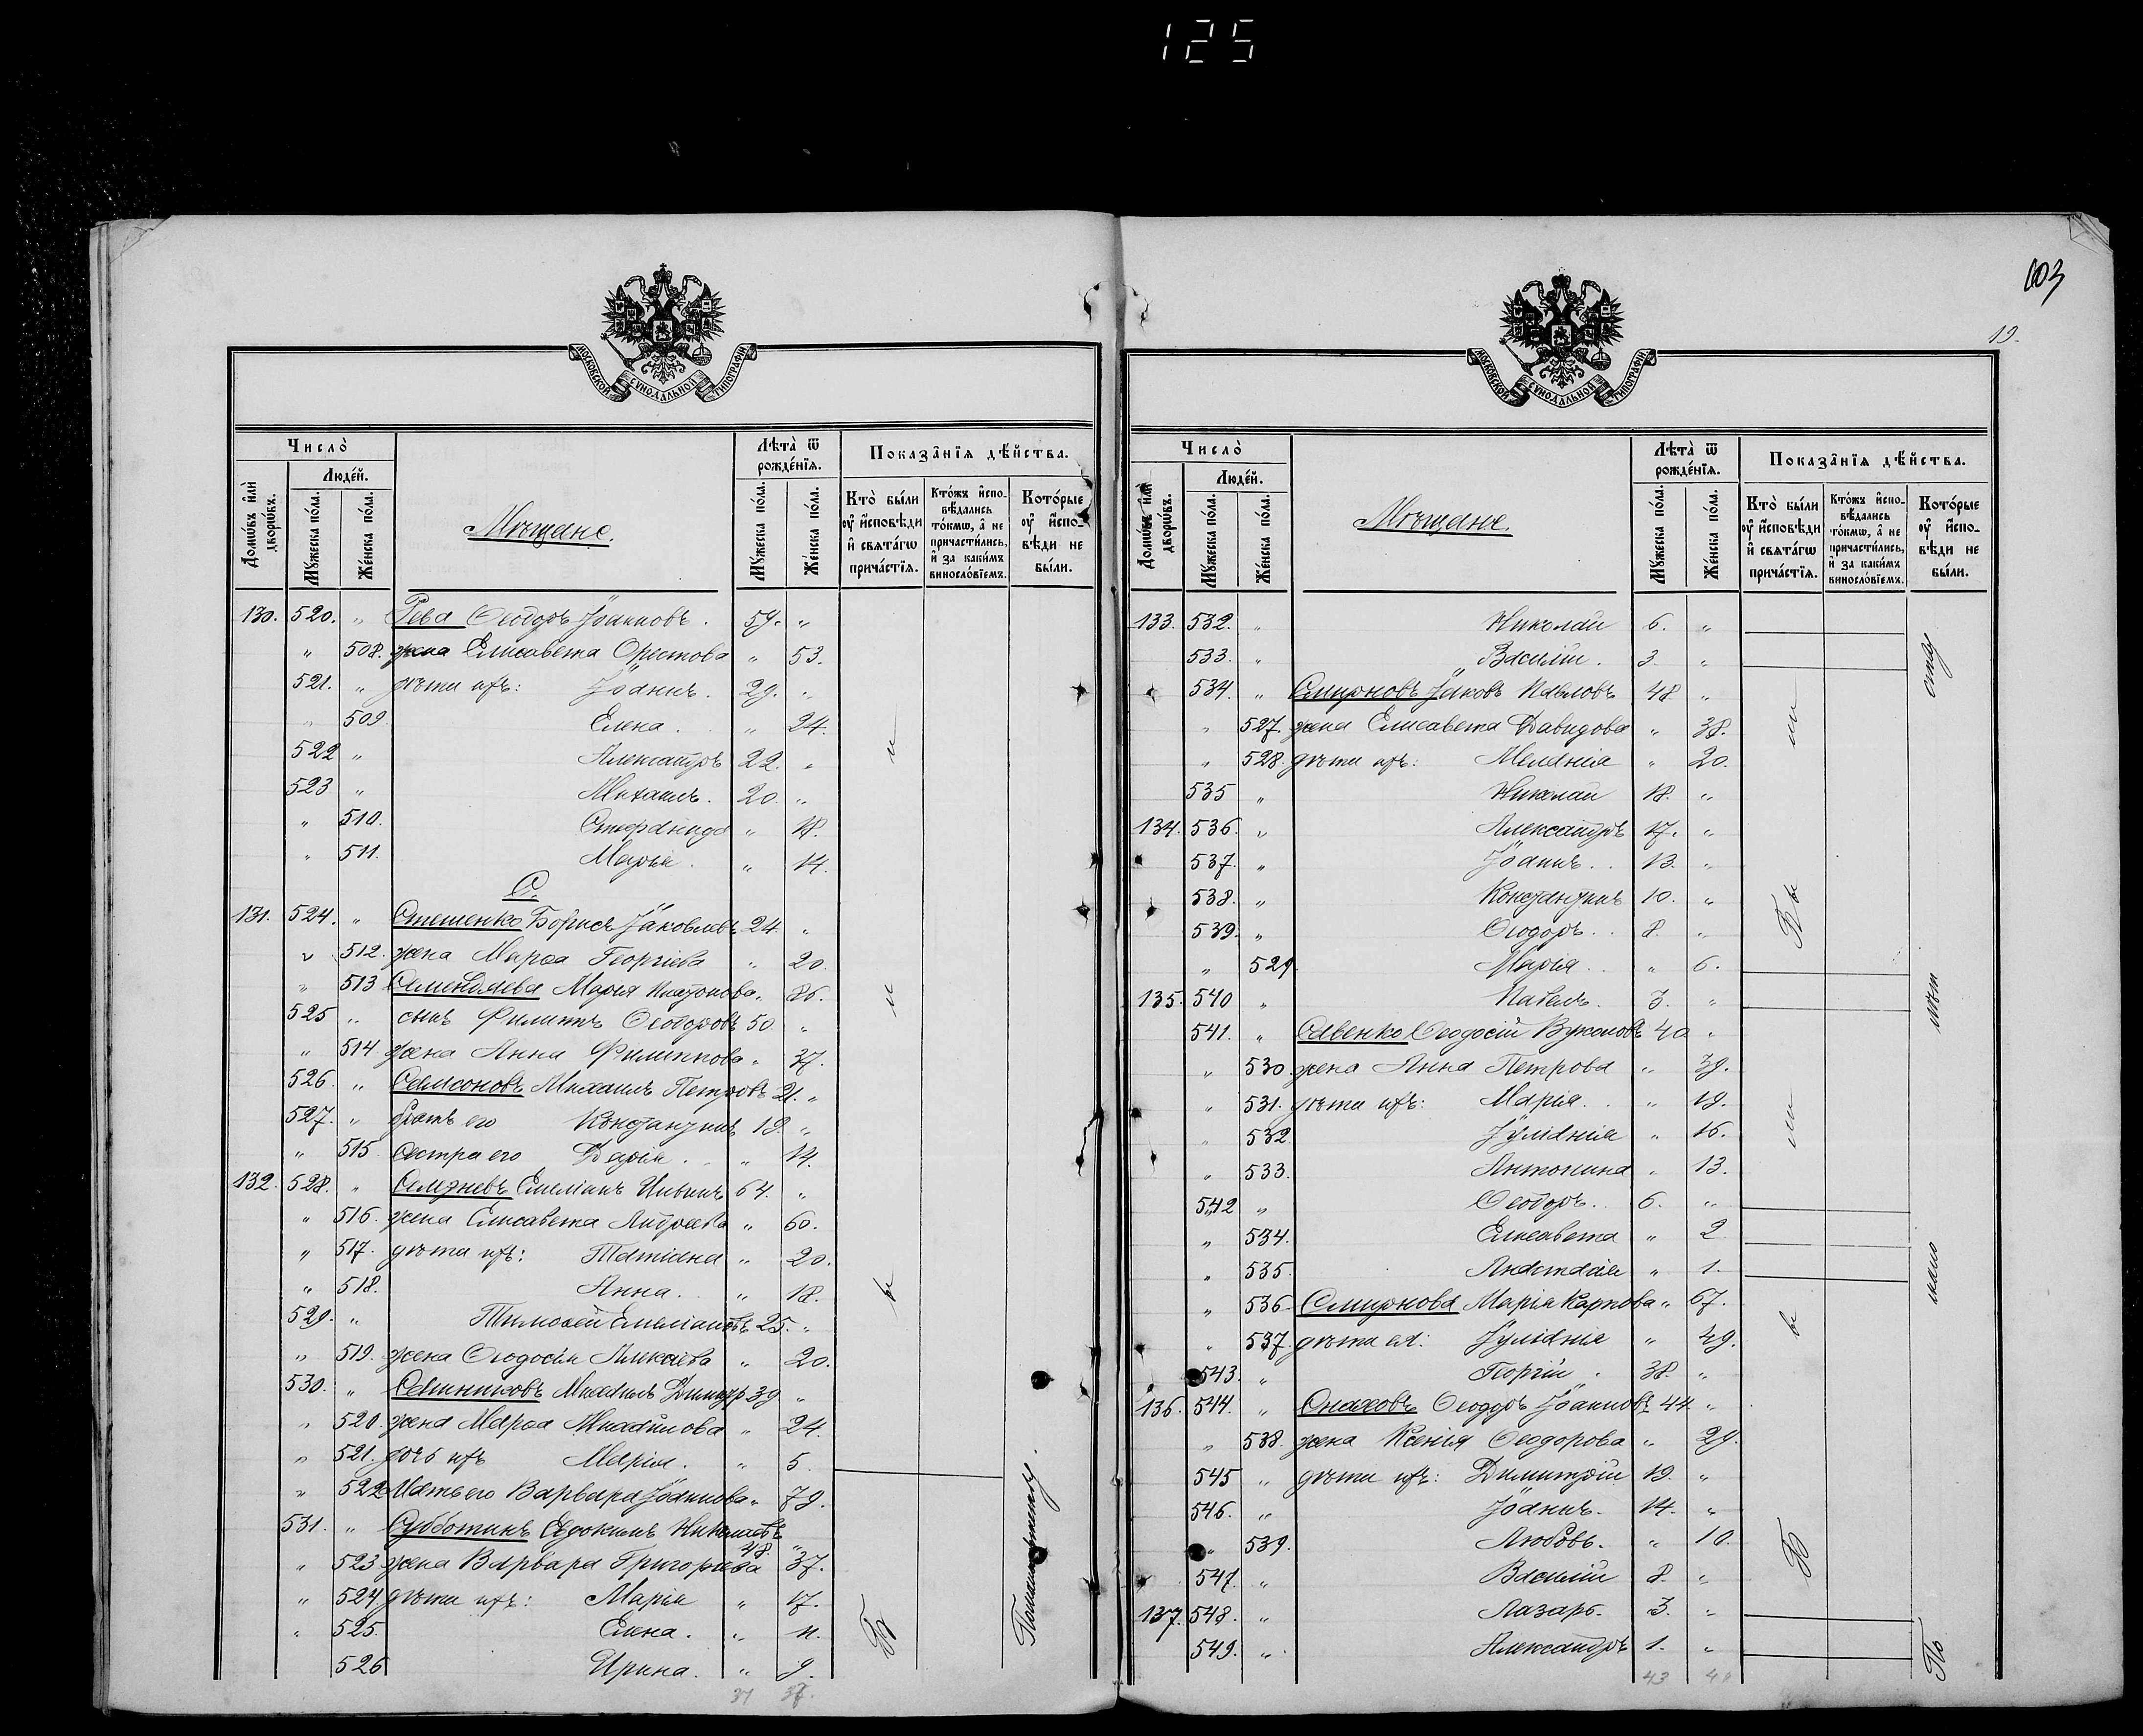 125
МОСКОВСКОЙ СѴНОДАЛЬНОЙ ТИПОГРАФІИ
Число̀
Домѡвъ и҆лѝ дворѡвъ.
Люде́й.
Мꙋ́жеска по́ла.
Же́нска по́ла.
Мѣщане.
Лѣта̀ ѿ рожде́нїѧ.
Мꙋ́жеска по́ла.
Же́нска по́ла.
Показа̑нїѧ дѣ́йства.
Кто̀ бы́ли ᲂу҆ и҆сповѣ́ди и҆ свѧта́гѡ прича́стїѧ.
Кто́жъ и҆спо- вѣ́дались то́кмѡ, а҆ не причасти́лись, и҆ за каки́мъ винослові́емъ.
Кото́рые ᲂу҆ и҆спо- вѣ́ди не бы́ли.
130. 520. " Рева Ѳеодоръ Іоанновъ. 59. "
" 508. жена Елисавета Орестова " 53.
521. " дѣти ихъ: Іоаннъ. 29. "
" 509 Елена. " 24.
522 " Александръ 22. "
523 " Михаилъ. 20. "
" 510. Стефанида " 18.
" 511. Марія. " 14.
С.
131. 524. " Стешенко Борисъ Іаковлевъ 24. "
" 512. жена Марѳа Георгіева " 20.
" 513 Марія Платонова " 86.
525 " сынъ Филиппъ Ѳеодоровъ 50. "
" 514 жена Анна Филиппова " 37.
526. " Самсоновъ Михаилъ Петровъ 21. "
527. " братъ его Константинъ 19. "
" 515 Сестра его Дарія. " 14.
132. 528. " Селезневъ Емеліанъ Ильинъ 64. "
" 516. жена Елисавета Андреева " 60.
" 517. дѣти ихъ: Татіана " 20.
" 518. Анна. " 18.
529. " Тимоѳей Емеліановъ 25. "
" 519. жена Ѳеодосія " 20.
530. " Михаилъ Димитр 39 "
" 520. жена Марѳа Михайлова " 24.
" 521. дочь ихъ Марія. " 5.
" 522 Мать его Варвара Іоаннова " 79.
531. " Субботинъ Евдокимъ Николаевъ 48. "
" 523 жена Варвара Григорьева 37.
" 524 дѣти ихъ: Марія " 17.
" 525. Елена. " 11.
526 Ирина. " 9.
37.
103
19.
МОСКОВСКОЙ СѴНОДАЛЬНОЙ ТИПОГРАФІИ
Число̀
Домѡвъ и҆лѝ дворѡвъ.
Люде́й.
Мꙋ́жеска по́ла.
Же́нска по́ла.
Мѣщане.
Лѣта̀ ѿ рожде́нїѧ.
Мꙋ́жеска по́ла.
Же́нска по́ла.
Показа̑нїѧ дѣ́йства.
Кто̀ бы́ли ᲂу҆ и҆сповѣ́ди и҆ свѧта́гѡ прича́стїѧ.
Кто́жъ и҆спо- вѣ́дались то́кмѡ, а҆ не причасти́лись, и҆ за каки́мъ винослові́емъ.
Кото́рые ᲂу҆ и҆спо- вѣ́ди не бы́ли.
133. 532. " Николай 6. "
533. " Василій. 3. "
534. " Смирновъ Іаковъ Павловъ 48 "
" 527. жена Елисавета Давидова " 38.
" 528. дѣти ихъ: Меланія " 20.
535 " Николай 18. "
134. 536. " Александръ 17. "
537. " Іоаннъ. 13. "
538. " Константинъ 10. "
539. " Ѳеодоръ. 8. "
" 529. Марія. " 6.
135. 540 " Павелъ. 3. "
541. " Савенко Ѳеодосій Вуколовъ 40 "
" 530. жена Анна Петрова " 39.
" 531. дѣти ихъ: Марія. " 19.
" 532 Іуліанія " 16.
" 533. Антонина " 13.
542 " Ѳеодоръ. 6. "
" 534. Елисавета " 2
" 535. " 1.
" 536. Смирнова Марія Карпова " 67.
" 537. дѣти ея: Іуліанія " 49.
543. " Георгій 38. "
136. 544. " Ѳеодоръ Іоанновъ 44 "
" 538. жена Ксенія Ѳеодорова " 29.
545 " дѣти ихъ: Димитрій 19. "
546. " Іоаннъ. 14. "
" 539. Любовь. " 10.
547. " Василій 8. "
137. 548. " Лазарь. 3. "
549. " Александръ 1. "
43